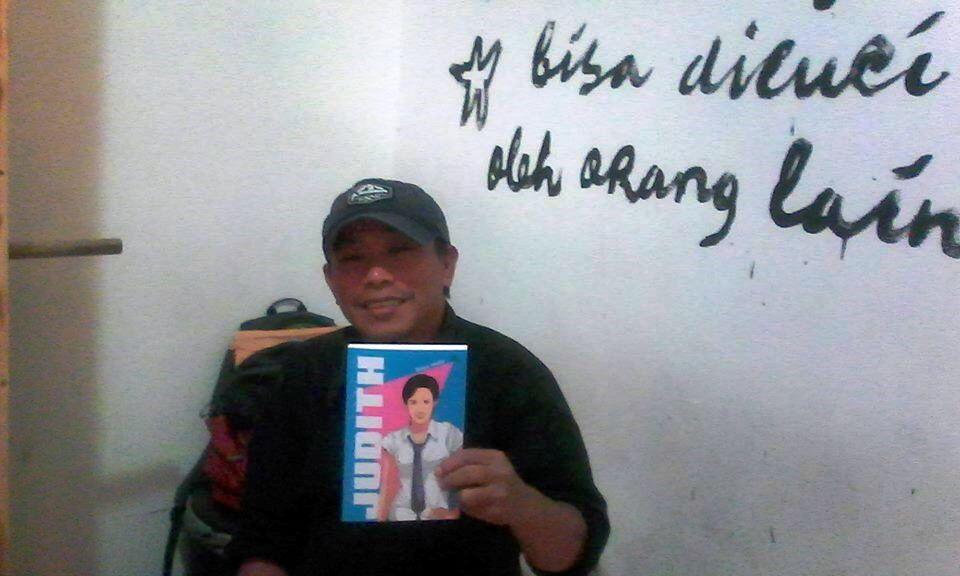 bisa dicuci
oleh oRang lain
JUDITH